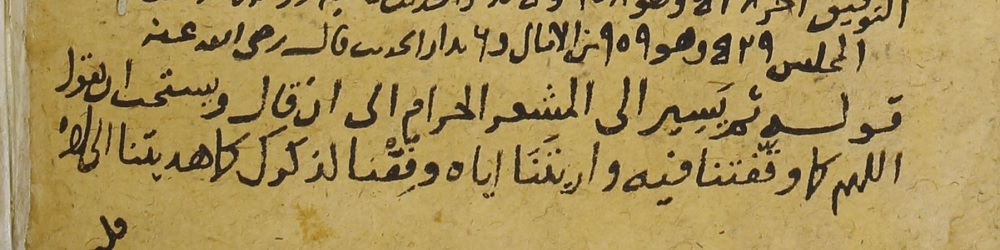 التوفيق
المجلس ٩٢٩ وهو ٩٥٩ من الامالى و٦ بدار الحديث قال رضى الله عنه
قوله ثم يَسِير الى المشعر الحرام الى ان قال ويستحب ان يقول
اللهم كما وقَّفتنا فيه واريتَنَا اياه وفِّقْنا لذكرك كما هديتنا الى آخره